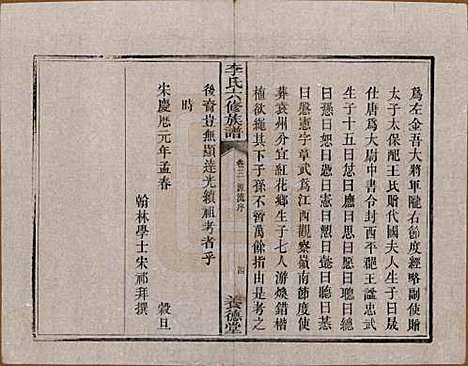 為左金吾大將軍隴右節度經略副使贈
太子太保配王氏贈代國夫人生子曰晟
仕唐為大尉中書令封西平郡王諡忠武
生子十五曰愿曰應曰思曰聽曰總
曰愻曰憑曰恕曰憲曰愬曰懿曰聽曰惎
曰慇憲字章武為江西觀察嶺南節度使
葬袁州分宜紅花鄉生子七人游煥錯楷
植欲繩其下子孫不啻萬餘指由是考之
李氏六修族譜
卷三 源流序
四
後裔豈無顯達光績祖考者乎
時
宋慶厯元年孟春
穀旦
翰林學士宋祁拜撰